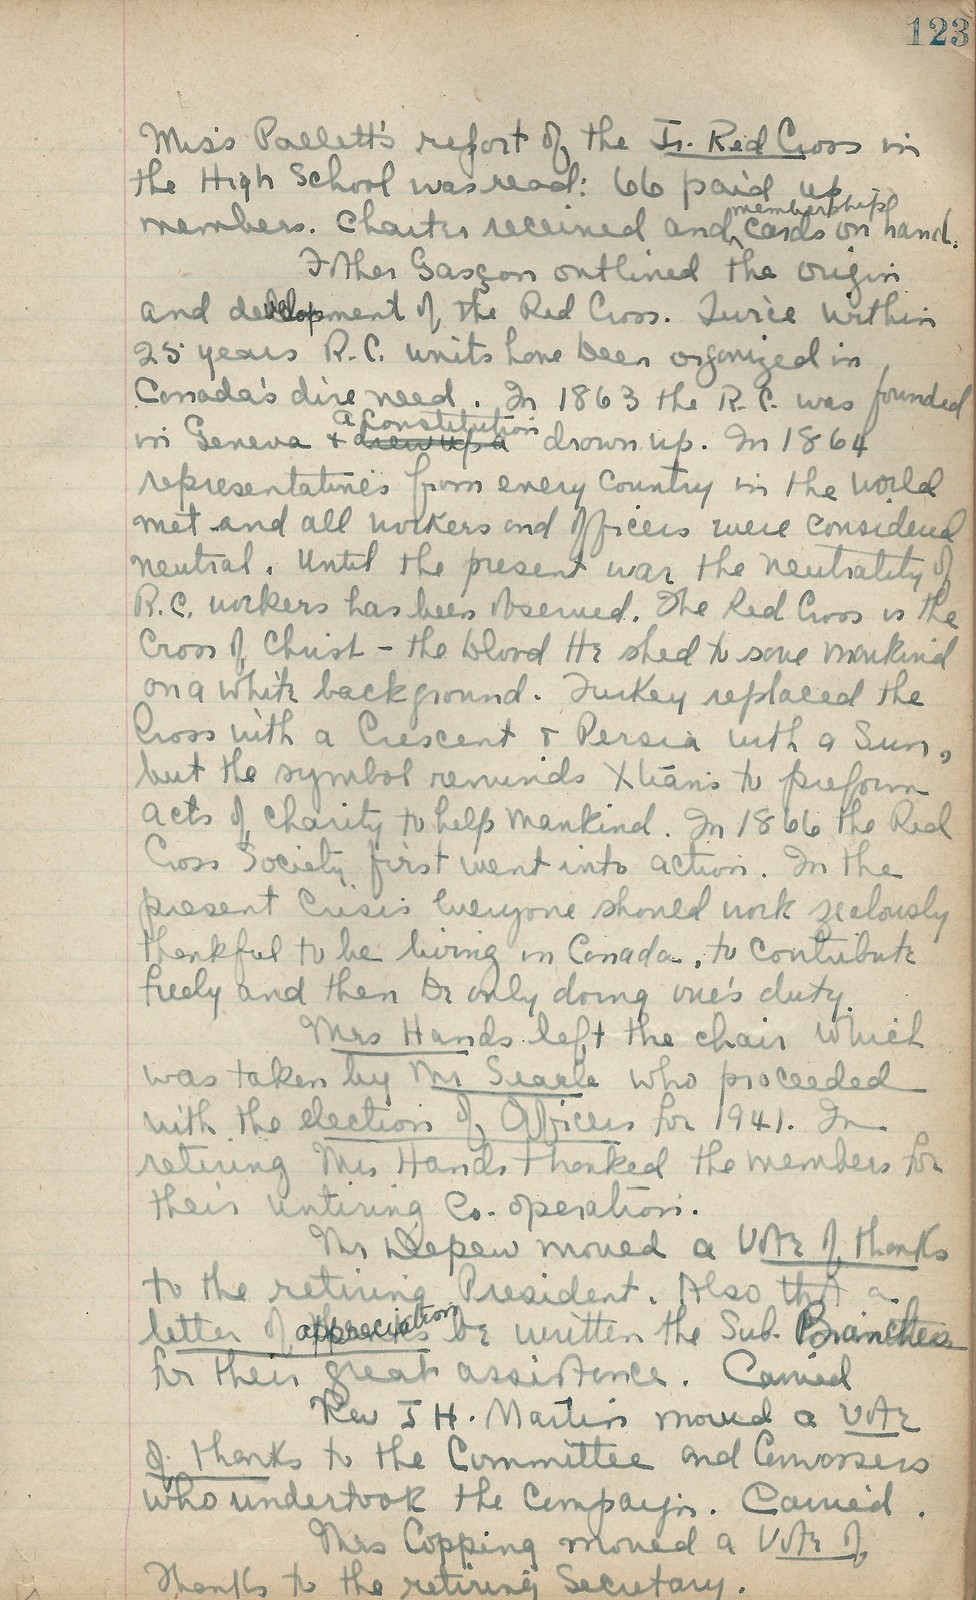 123
Miss Pallett's report of the Jr. Red Cross in
the High School was read: 66 paid up
members. Charter received and membership cards on hand.
Father Gascon outlined the origin
and development of the Red Cross. Twice within
25 years R.C. units have been organized in
Canada's dire need. In 1863 the R.C. was founded
in Geneva & a Constitution drew up a drawn up. In 1864
representatives from every country in the world
met and all workers and officers were considered
neutral. Until the present war the neutrality of
R.C. workers has been observed. The Red Cross is the
Cross of Christ - the blood He shed to save mankind
on a white background. Turkey replaced the
Cross with a Crescent & Persia with a Sun,
but the symbol reminds Xtians to preform
acts of charity to help mankind. In 1866 the Red
Cross Society first went into action. In the
present Crisis everyone should work zealously
thankful to be living in Canada, to contribute
freely and then be only doing one's duty.
Mrs Hands left the chair which
was taken by Mr Searle who proceeded
with the election of Officers for 1941. In
retiring Mrs Hands thanked the members for
their untiring Co-operation.
Mr Depew moved a Vote of thanks
to the retiring President. Also that a
letter of appreciation be written the Sub. Branches
for their great assistance. Carried
Rev J H. Martin moved a vote
of thanks to the Committee and Canvassers
who undertook the Campaign. Carried.
Mrs Copping moved a Vote of
Thanks to the retiring Secretary.